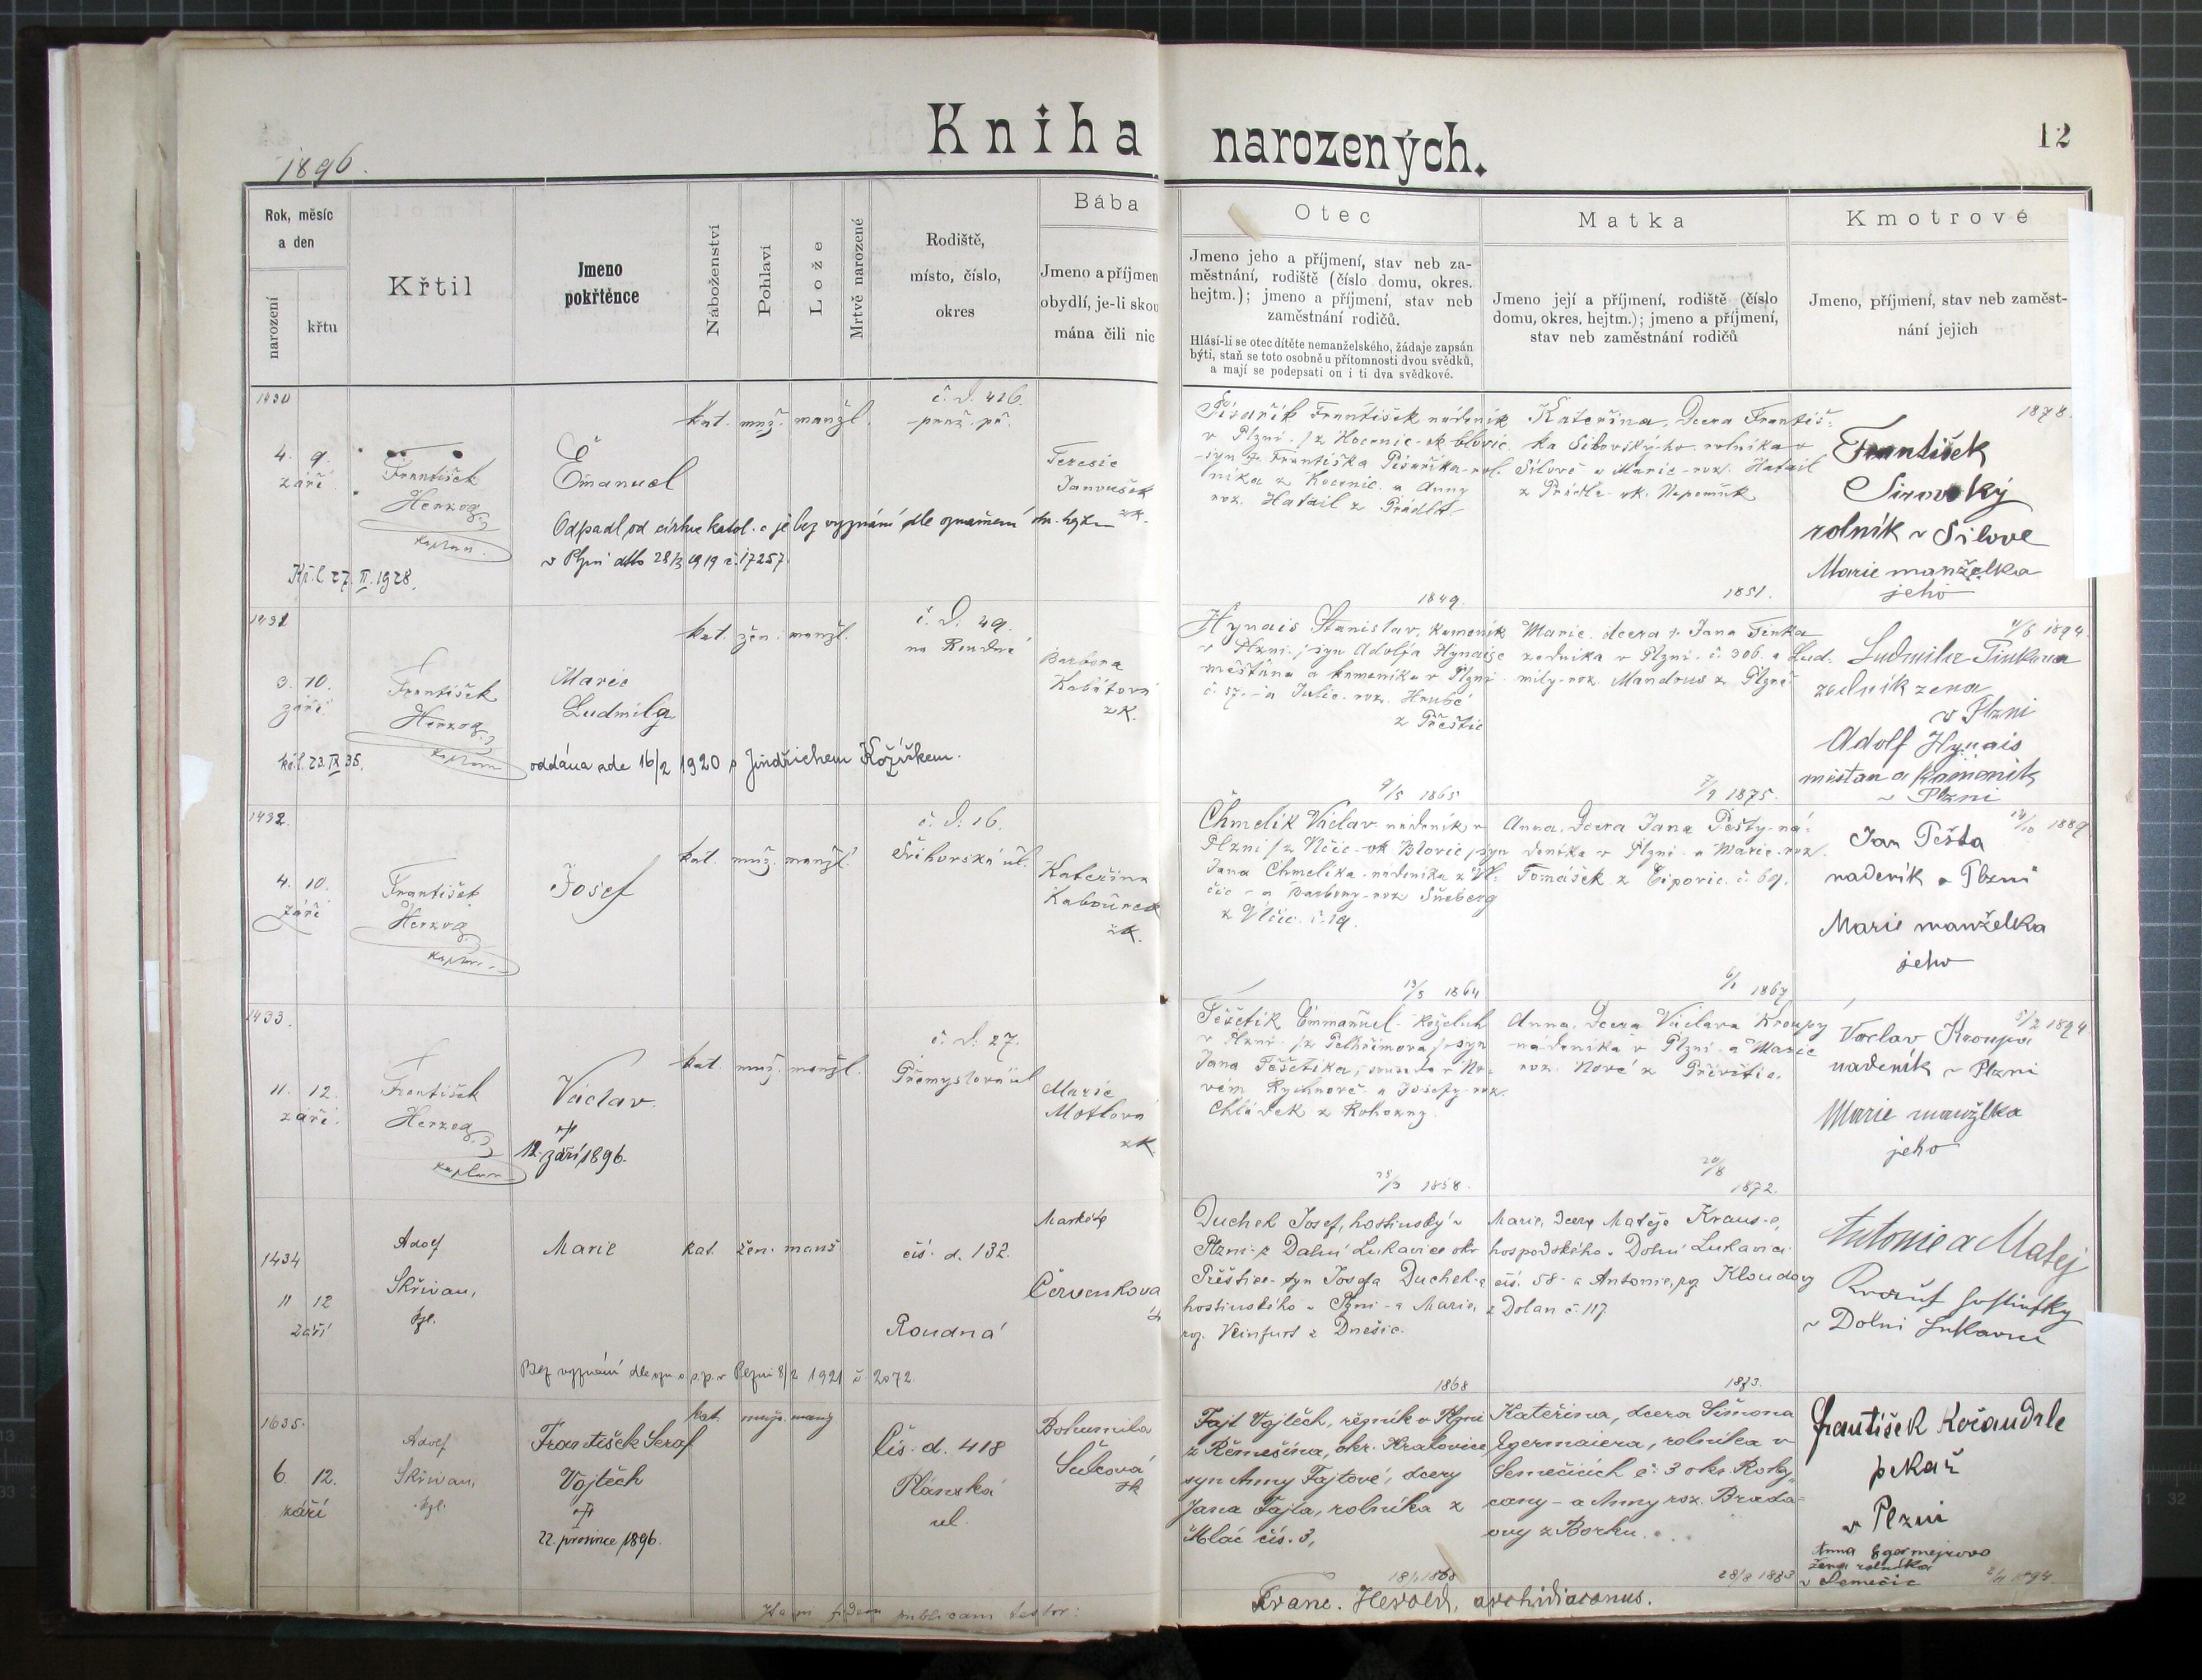 Kniha narozených.
12
1896.
Rok, měsíc
a den
narození
křtu
Křtil
Jmeno
pokřtěnce
Náboženství
Pohlaví
Lože
Mrtvě narozené
Rodiště,
místo, číslo,
okres
Bába
Jmeno a příjmen
obydlí, je-li skou
mána čili nic
Otec
Jmeno jeho a příjmení, stav neb za-
městnání, rodiště (číslo domu, okres.
hejtm.); jmeno a příjmení, stav neb
zaměstnání rodičů.
Hlásí-li se otec dítěte nemanželského, žádaje zapsán
býti, staň se toto osobně u přítomnosti dvou svědků,
a mají se podepsati on i ti dva svědkové.
Matka
Jmeno její a příjmení, rodiště (číslo
domu, okres. hejtm.); jmeno a příjmení,
stav neb zaměstnání rodičů
Kmotrové
Jmeno, příjmení, stav neb zaměst-
nání jejich
1430
4. 9.
září
František
Herzog
kaplan.
Emanuel
kat. muž. manžl.
č. d. 426.
Terezie
Janoušek
zk.
Odpadl od církve katol. a je bez vyznání dle oznámení okr. hejtm
v Plzni dto 28/3 1919 č. 17257.
Kř. l. 27. II. 1928.
Písařík František nádeník
v Plzni
syn Františka Písaříka rol-
níka z a Anny
roz. Hatail z Prádla
1849.
Kateřina, dcera Františ-
ka rolníka v
Sílově a Marie roz. Hatail
z Prádla ok. Nepomuk
1851.
1878.
František
rolník v Sílove
Marie manželka
jeho
1431
3. 10.
září
František
Herzog
kaplan
kř. l. 23. IX 35.
Marie
Ludmila
kat. žen. manžl.
č. d. 49.
na Roudné
Barbora
Kabátová
zk.
oddána zde 16/2 1920 s Jindřichem Kožíškem.
Hynais Stanislav, kameník
v Plzni, syn Adolfa Hynaise
měšťana a kameníka v Plzni
č. 57. a Julie roz. Hrubé
z Přeštic
9/5 1865
Marie, dcera Jana Tinka
zedníka v Plzni č. 306. a Lud-
mily roz. Mandous z Plzně
7/9 1875.
1894.
Ludmila Tinkova
zednik zena
v Plzni
Adolf Hynais
mistan a kamenik
v Plzni
1432.
4. 10.
září
František
Herzog
kaplan
Josef
kat. muž. manžl.
č. d. 16.
Kateřina
Kabourek
zk.
Chmelík Václav nádeník v
Plzni z Vlčic ok Blovic, syn
Jana Chmelíka nádeníka z Vl-
čic a Barbory roz
z Vlčic č. 19.
1864
Anna, dcera Jana Pešty ná-
deníka v Plzni a Marie roz.
Tomášek z č. 69.
1867
1889
Jan Pešta
nadenik v Plzni
Marie manželka
jeho
1433.
11. 12.
září.
František
Herzog
kaplan
Václav.
12. září 1896.
kat. muž. manžl.
č. d. 27.
Přemyslova ul
Marie
Motlová
zk.
Těšetik Emmanuel koželuh
v Plzni z Pelhřimova, syn
Jana Těšetika, souseda v No-
vém Rychnově a Josefy roz.
Chládek z Rohozny.
1858.
Anna, dcera Václava Kroupy
nádeníka v Plzni a Marie
roz. Nové z
20/8
1872.
5/2 1894
Vaclav Kroupa
nadeník v Plzni
Marie manželka
jeho
1434
11 12
září
Adolf
Skřivan,
kpl.
Marie
kat. žen. manž
čís. d. 132.
Roudná
Markéta
Červenkova
Bez vyznání dle ozn. o. s. p. v Plzni 8/2 1921 č 2072.
Duchek Josef, hostinský v
Plzni z Dolní Lukavice okr
Přeštice, syn Josefa Duchek-a
hostinského v Plzni a Marie,
roz. Veinfurt z Dnešic.
1868
Marie, dcera Matěje Kraus-e,
hospodského v Dolní Lukavici
čís. 58 a Antonie, roz. Kloudov
z Dolan č. 117.
1873.
Antonie a Matej
v Dolni Lukavici
1635.
6. 12.
září
Adolf
Skřivan,
kpl.
František Seraf
Vojtěch
22. prosince 1896.
kat. mužs. manž
Čís. d. 418
Plánská
ul.
Bohumila
Šulcová
zk
Fajt Vojtěch, řezník v Plzni
z Řemešína, okr. Kralovice,
syn Anny Fajtové, dcery
Jana Fajta, rolníka z
čís. 3,
1868
Kateřina, dcera Šimona
Egermaiera, rolníka v
Semečicích č. 3 okr. Roky-
cany a Anny roz. Brada-
ovy z Borku.
28/8 1883
František Kočandrle
pekař
v Plzni
Anna Egermejrova
žena rolníka
v Semečic
1894.
Ita in fidem publicam testor:
Franc. Herold, archidiaconus.